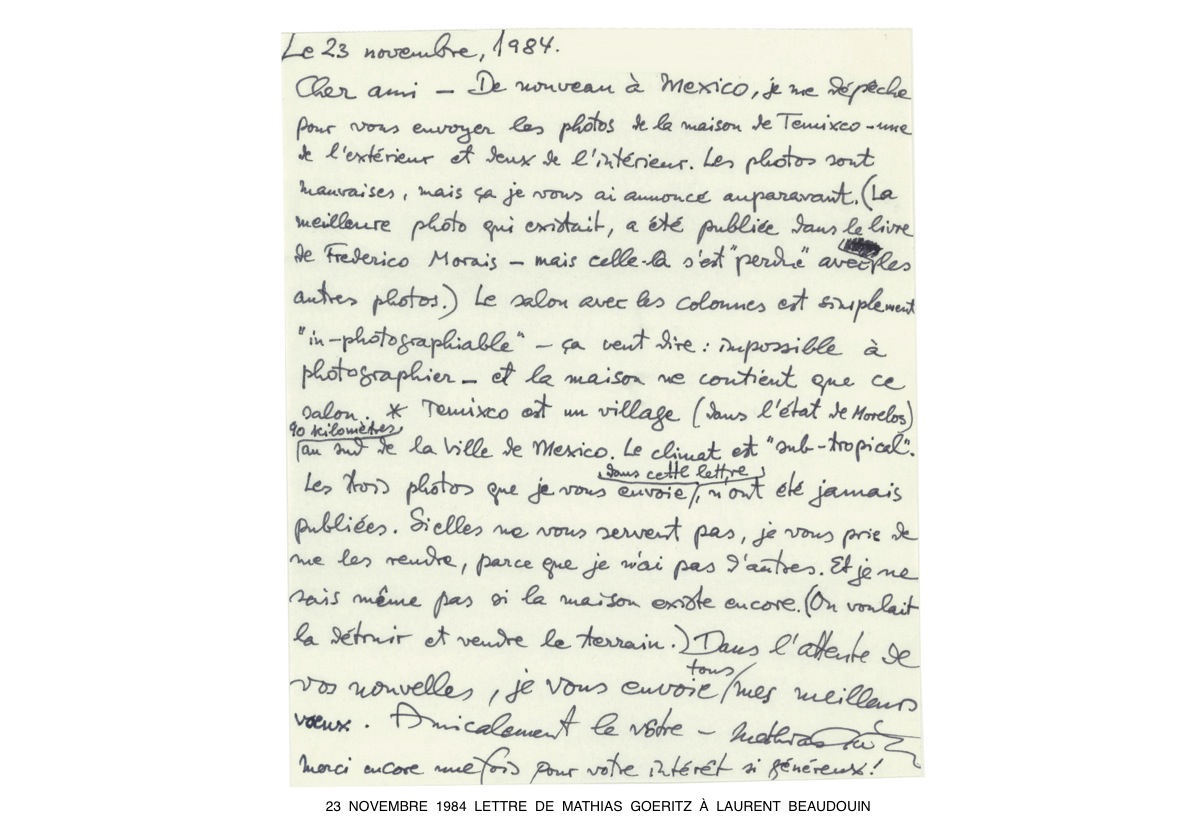 Le 23 novembre, 1984.
Cher ami – De nouveau à Mexico, je me dépêche
pour vous envoyer les photos de la maison de Temixco - une
de l'extérieur et deux de l'intérieur. Les photos sont
mauvaises, mais ça je vous ai annoncé auparavant. (La
meilleure photo qui existait, a été publiée dans le livre
de Frederico Morais – mais celle-la s'est "perdue" avec les
autres photos.) Le salon avec les colonnes est simplement
"in-photographiable" – ça veut dire : impossible à
photographier – et la maison ne contient que ce
salon. * Temixco est un village (dans l'état de Morelos)
90 kilomètres
au sud de la Ville de Mexico. Le climat est "sub-tropical".
dans cette lettre
Les trois photos que je vous envoie, n'ont été jamais
publiées. Si elles ne vous servent pas, je vous prie de
me les rendre, parce que je n'ai pas d'autres. Et je ne
sais même pas si la maison existe encore. (On voulait
la détruir et vendre le terrain.) Dans l'attente de
tous
vos nouvelles, je vous envoie mes meilleurs
vœux. Amicalement le vôtre – Mathias
Merci encore une fois pour votre intérêt si généreux!
23 NOVEMBRE 1984 LETTRE DE MATHIAS GOERITZ À LAURENT BEAUDOUIN